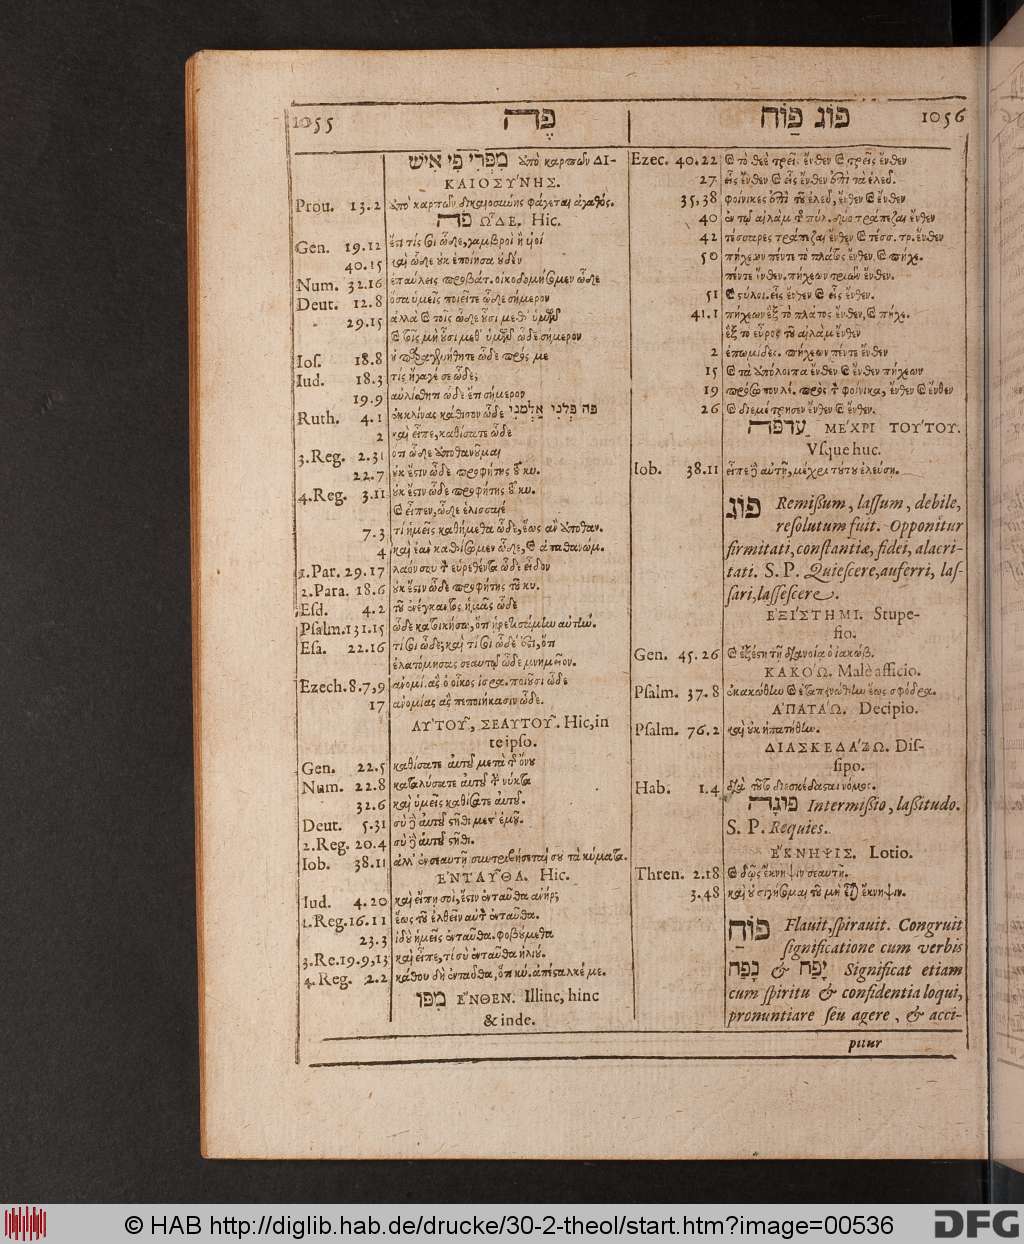 1055 פֶּה
מִפְּרִי פִי אִישׁ ὑπὸ καρπῶν ΔΙ-
ΚΑΙΟΣΥΝΗΣ.
Prou. 13.2 ὑπὸ καρπῶν δικαιοσύνης φάγεται ἀγαθός.
פֹּה ΩΔΕ. Hic.
Gen. 19.12 ἔτι τίς σοι ὧδε, γαμβροὶ ἢ υἱοί
40.15 καὶ ὧδε οὐκ ἐποίησα οὐδέν
Num. 32.16 ἐπαύλεις προβάτ. οἰκοδομήσωμεν ὧδε
Deut. 12.8 ὅσα ὑμεῖς ποιεῖτε ὧδε σήμερον
29.15 ἀλλὰ καὶ τοῖς ὧδε οὖσι μεθ' ὑμῶν
καὶ τοῖς μὴ οὖσι μεθ' ὑμῶν ὧδε σήμερον
Ios. 18.8 ὧδε πρός με
Iud. 18.3 τίς ἤγαγέ σε ὧδε;
19.9 αὐλίσθητι ὧδε ἔτι σήμερον
Ruth. 4.1 ἐκκλίνας κάθισον ὧδε פה פְּלֹנִי אַלְמֹנִי
2 καὶ εἶπε, καθίσατε ὧδε
3. Reg. 2.31 ὅτι ὧδε ἀποθανοῦμαι
22.7 οὐκ ἔστιν ὧδε προφήτης τοῦ κυ.
4. Reg. 3.11 οὐκ ἔστιν ὧδε προφήτης τοῦ κυ.
καὶ εἶπεν, ὧδε ἐλισσαιὲ
7.3 τί ἡμεῖς καθήμεθα ὧδε, ἕως ἂν ἀποθαν.
4 καὶ ἐὰν καθίσωμεν ὧδε, καὶ ἀποθανώμ.
1. Par. 29.17 λαόν σου τὸν εὑρεθέντα ὧδε εἶδον
2. Para. 18.6 οὐκ ἔστιν ὧδε προφήτης τοῦ κυ.
Esd. 4.2 τοῦ ἐνέγκαντος ἡμᾶς ὧδε
Psalm. 131.15 ὧδε κατοικήσω, ὅτι ᾑρετισάμην αὐτήν.
Esa. 22.16 τί σοι ὧδε; καὶ τί σοι ὧδέ ἐστι, ὅτι
ἐλατόμησας σεαυτῷ ὧδε μνημεῖον.
Ezech. 8.7,9 ἀνομί. ἃς ὁ οἶκος ἰσρα. ποιοῦσι ὧδε
17 ἀνομίας ἃς πεποιήκασιν ὧδε.
ΑΥΤΟΥ, ΣΕΑΥΤΟΥ. Hic, in
te ipso.
Gen. 22.5 καθίσατε αὐτοῦ μετὰ τῆς ὄνου
Num. 22.8 καταλύσατε αὐτοῦ τὴν νύκτα
32.6 καὶ ὑμεῖς καθίσατε αὐτοῦ.
Deut. 5.31 σὺ δὲ αὐτοῦ στῆθι μετ' ἐμοῦ.
2. Reg. 20.4 σὺ δὲ αὐτοῦ στῆθι.
Iob. 38.11 ἀλλ' ἐν σεαυτῇ συντριβήσεταί σου τὰ κύματα.
ΕΝΤΑΥΘΑ. Hic.
Iud. 4.20 καὶ εἴπῃ σοὶ, ἔστιν ἐνταῦθα ἀνήρ;
1. Reg. 16.11 ἕως τοῦ ἐλθεῖν αὐτὸν ἐνταῦθα.
23.3 ἰδοὺ ἡμεῖς ἐνταῦθα. φοβούμεθα
3. Re. 19.9,13 καὶ εἶπε, τί σὺ ἐνταῦθα ἠλιού.
4. Reg. 2.2 κάθου δὴ ἐνταῦθα, ὅτι κύ. ἀπέσταλκέ με.
מִפּוֹ ΕΝΘΕΝ. Illinc, hinc
& inde.
פּוּג פּוּחַ 1056
Ezec. 40.22 καὶ τὸ θεὲ τρεῖς ἔνθεν καὶ τρεῖς ἔνθεν
27 εἷς ἔνθεν καὶ εἷς ἔνθεν ἐπὶ τὰ ἐλεδ.
35,38 φοίνικες ἐπὶ τοῦ ἐλεδ, ἔνθεν καὶ ἔνθεν
40 δύο τράπεζαι ἔνθεν
42 τέσσαρες τράπεζαι ἔνθεν καὶ τέσσ. τρ. ἔνθεν
50 πήχεων πέντε τὸ πλάτος ἔνθεν, καὶ πήχε.
πέντε ἔνθεν. πήχεων τριῶν ἔνθεν.
51 καὶ στύλοι. εἷς ἔνθεν καὶ εἷς ἔνθεν.
41.1 πήχεων ἓξ τὸ πλάτος ἔνθεν, καὶ πήχε.
ἓξ τὸ εὖρος τοῦ αἰλὰμ ἔνθεν
2 ἐπωμίδες. πήχεων πέντε ἔνθεν
15 καὶ τὰ ἀπόλοιπα ἔνθεν καὶ ἔνθεν πήχεων
19 πρόσωπον λέ. πρὸς τὸν φοίνικα, ἔνθεν καὶ ἔνθεν
26 καὶ διεμέτρησεν ἔνθεν καὶ ἔνθεν.
עַד־פֹּה ΜΕΧΡΙ ΤΟΥΤΟΥ.
Vsque huc.
Iob. 38.11 εἶπα δὲ αὐτῇ, μέχρι τούτου ἐλεύσῃ.
פּוּג Remißum, lassum, debile,
resolutum fuit. Opponitur
firmitati, constantiæ, fidei, alacri-
tati. S. P. Quiescere, auferri, las-
sari, lassescere.
ΕΞΙΣΤΗΜΙ. Stupe-
fio.
Gen. 45.26 καὶ ἐξέστη τῇ διανοίᾳ ὁ ἰακώβ.
ΚΑΚΟΩ. Malè afficio.
Psalm. 37.8 ἐκακώθην καὶ ἐταπεινώθην ἕως σφόδρα.
ΑΠΑΤΑΩ. Decipio.
Psalm. 76.2 καὶ οὐκ ἠπατήθην.
ΔΙΑΣΚΕΔΑΖΩ. Dis-
sipo.
Hab. 1.4 διὰ τοῦτο διεσκέδασται νόμος.
פּוּגָה Intermißio, laßitudo.
S. P. Requies.
ΕΚΝΗΨΙΣ. Lotio.
Thren. 2.18 καὶ δῷς ἔκνηψιν σεαυτῇ.
3.48 καὶ οὐ σιγήσομαι τοῦ μὴ εἶναι ἔκνηψιν.
פּוּחַ Flauit, spirauit. Congruit
significatione cum verbis
נָפַח & יָפַח Significat etiam
cum spiritu & confidentia loqui,
pronuntiare seu agere, & acci-
pitur
© HAB http://diglib.hab.de/drucke/30-2-theol/start.htm?image=00536
DFG